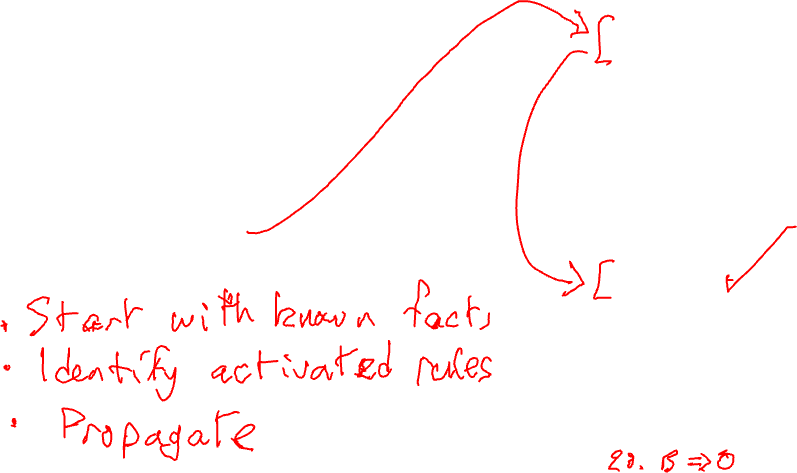 [
[
• Start with known facts
• Identify activated rules
• Propagate
B ⇒ O